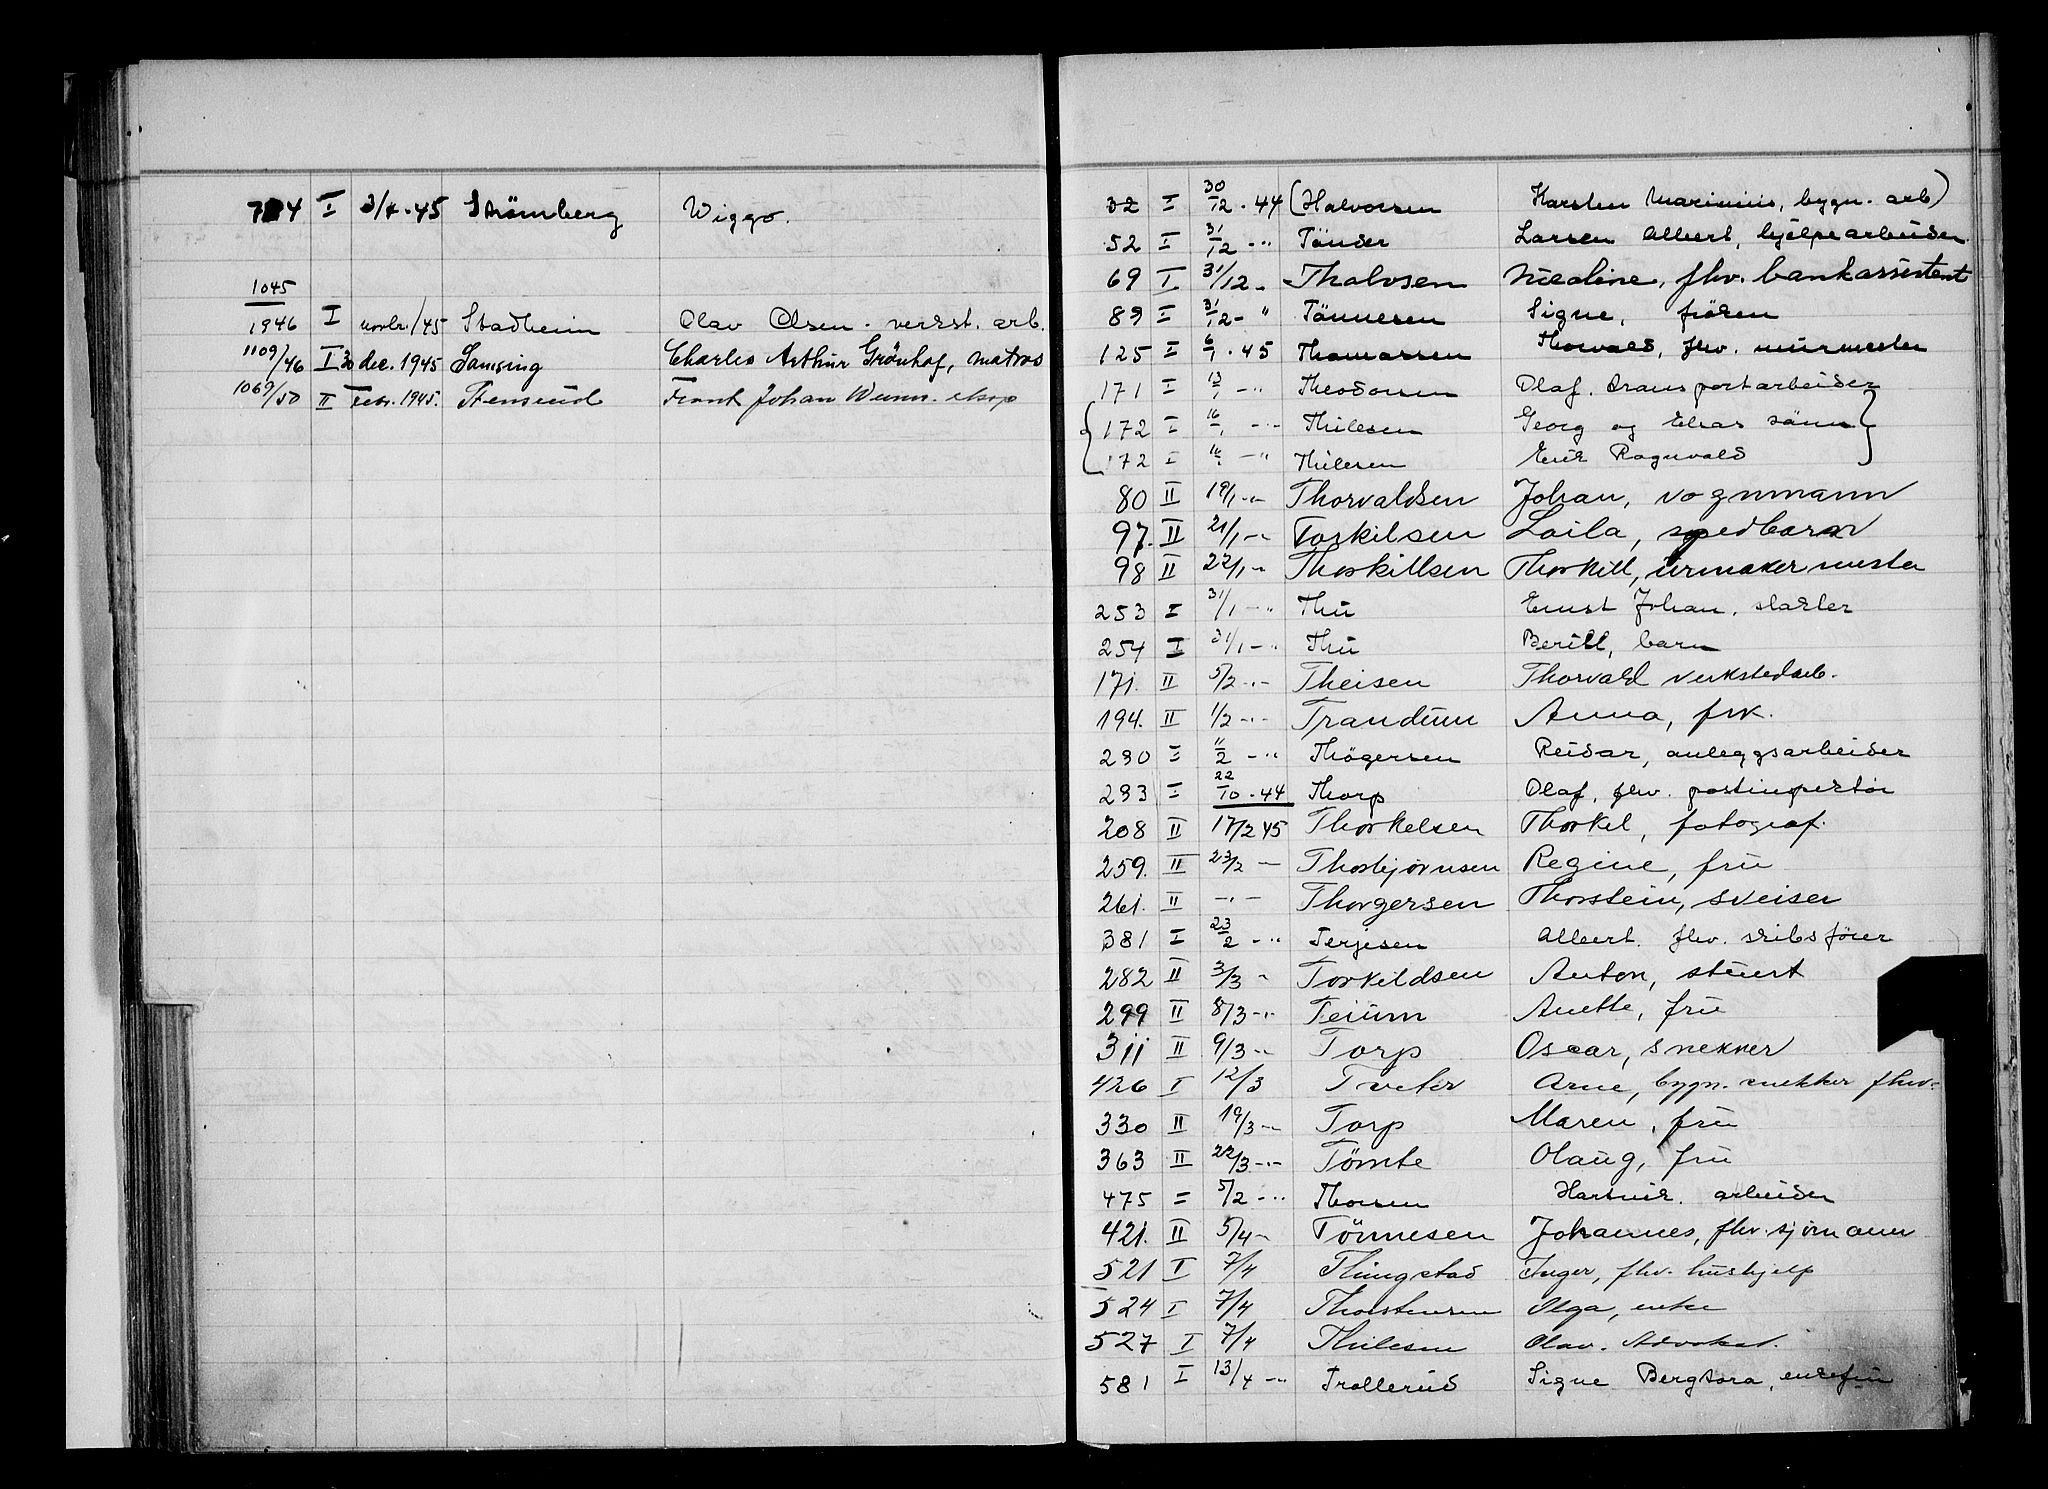 I 3/4.45 Strømberg Wiggo.
1045
1946 I novbr./45 Stadheim Olav Olsen. verkst. arb.
1109/46 I 30 dec. 1945 Samsing Charles Arthur Grønhof, matros
1069/50 II Febr. 1945. Stensrud Frank Johan
32 I 30/12.44 (Halvorsen Karsten Marinius, bygn. arb)
52 I 31/12 -"- Tønder Larsen Albert, hjelpearbeider
69 I 31/12 - Thalvsen Nicoline, fhv. bankassistent
89 I 31/12 - " Tönnesen Signe, frøken
125 I 6/1.45 Thomassen Thorvald, fhv. murmester
171 I 13/1 -"- Theodorsen Olaf. transportarbeider
172 I 16/1 -"- Thilesen Georg og Elias sönn
172 I 16/1 -"- Thilesen Erik Ragnvald
80 II 19/1 -"- Thorvaldsen Johan, vognmann
97. II 21/1 -"- Torkilsen Laila, spedbarn
98 II 22/1 -"- Thorkillsen Thorkill, urmaker mester
253 I 31/1 -"- Thu Ernst Johan. slakter
254 I 31/1 -"- Thu Berill, barn
171. II 5/2 -"- Theisen Thorvald verkstedarb.
194. II 1/2 -"- Trandum Anna, frk.
290 I 11/2 -"- Thögersen Reidar, anleggsarbeider
293 I 22/10.44 Thorp Olaf, fhv. postinspektör
208 II 17/2 45 Thorkelsen Thorkel, fotograf.
259. II 23/2 - Thorbjørnsen Regine, fru
261. II -"- Thorgersen Thorstein, sveiser
381 I 23/2 -"- Terjesen Albert. fhv. skibsfører
282 II 3/3 - Torkildsen Anton, stuert
299 II 8/3 -"- Teium Anette, fru
311 II 9/3 -"- Torp Oscar, snekker
426 I 12/3 Tveter Arne, bygn. snekker fhv.
330 II 19/3 -"- Torp Maren, fru
363 II 22/3 -"- Tømte Olaug, fru
475 I 5/2 -"- Thorsen Hartvik. arbeider
421. II 5/4 - Tönnesen Johannes, fhv. sjømann
521 I 7/4 Thingstad Inger, fhv. hushjelp
524 I 7/4 Thorstensen Olga, enke
527 I 7/4 Thilesen Olav. Advokat.
581 I 13/4 -"- Trollerud Signe Bergtora, enkefru